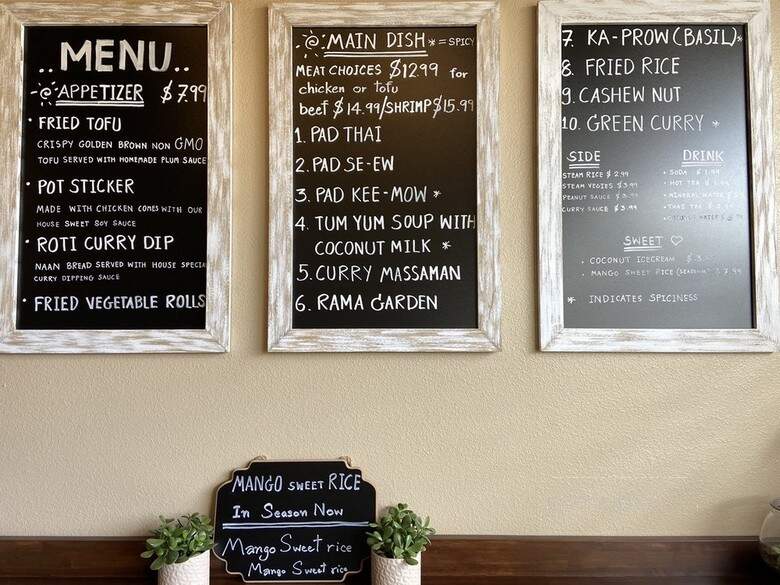 MENU
APPETIZER $7.99
• FRIED TOFU
CRISPY GOLDEN BROWN NON GMO
TOFU SERVED WITH HOMEMADE PLUM SAUCE
• POT STICKER
MADE WITH CHICKEN COMES WITH OUR
HOUSE SWEET SOY SAUCE
• ROTI CURRY DIP
NAAN BREAD SERVED WITH HOUSE SPECIAL
CURRY DIPPING SAUCE
• FRIED VEGETABLE ROLLS
MAIN DISH * = SPICY
MEAT CHOICES $12.99 for
chicken or tofu
beef $14.99/SHRIMP $15.99
1. PAD THAI
2. PAD SE-EW
3. PAD KEE-MOW *
4. TUM YUM SOUP WITH
COCONUT MILK *
5. CURRY MASSAMAN
6. RAMA GARDEN
7. KA-PROW (BASIL)*
8. FRIED RICE
9. CASHEW NUT
10. GREEN CURRY *
SIDE
STEAM RICE $2.99
STEAM VEGIES $3.99
PEANUT SAUCE $3.99
CURRY SAUCE $3.99
DRINK
• SODA $1.99
• HOT TEA
• MINERAL WATER
• THAI TEA
• COCONUT WATER
SWEET ♡
• COCONUT ICECREAM $3.
• MANGO SWEET RICE (SEASON) $7.99
* INDICATES SPICINESS
MANGO SWEET RICE
In Season Now
Mango Sweet rice
Mango Sweet rice